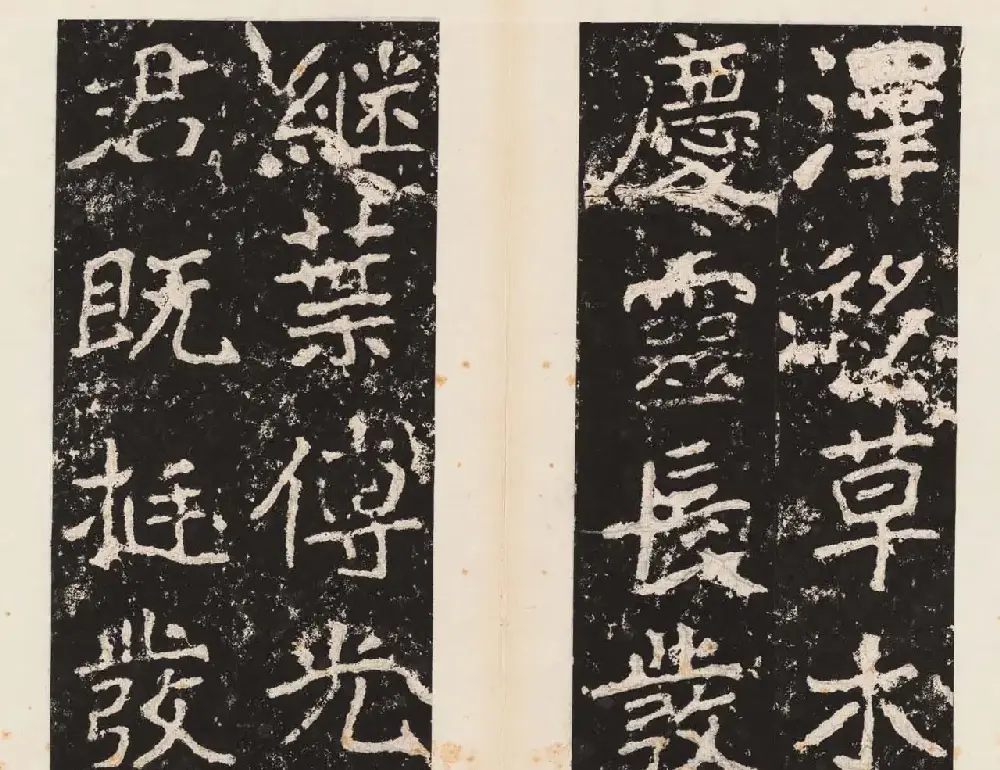 澤草木
慶靈長發
繼葉傳光
君既挺發